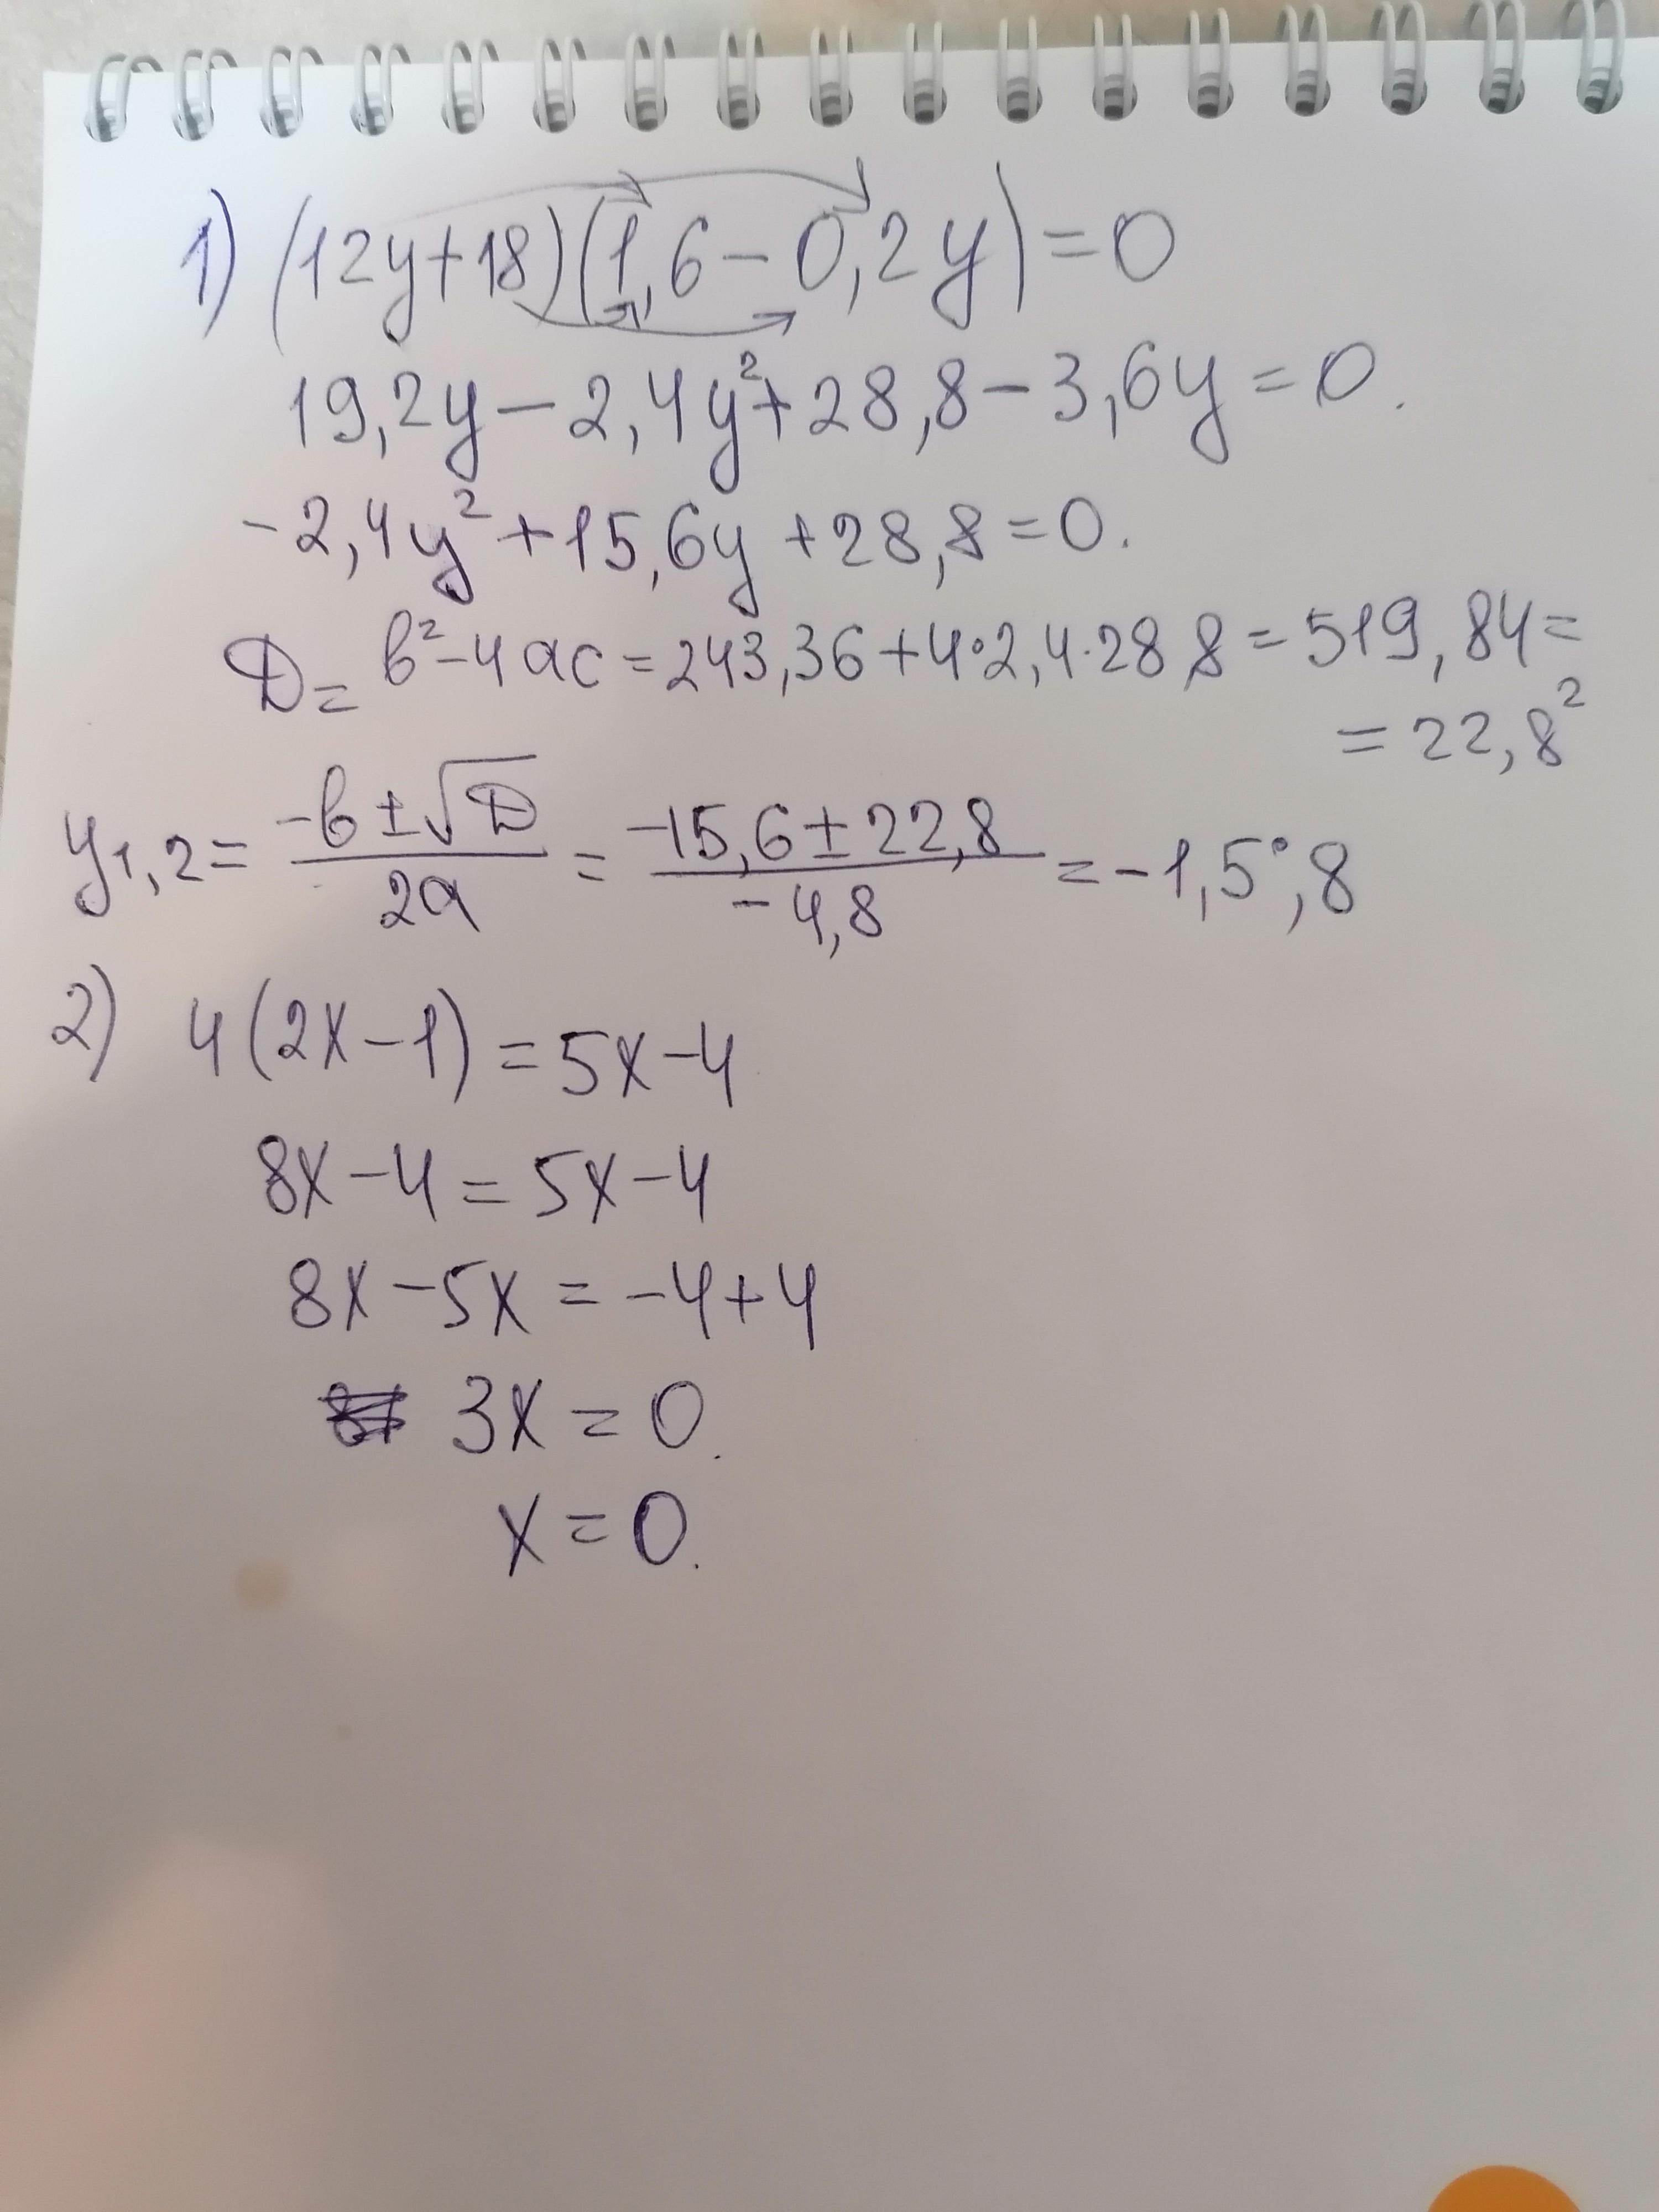 1) (12y+18)(1,6-0,2y)=0
19,2y-2,4y²+28,8-3,6y=0.
-2,4y²+15,6y+28,8=0.
D= b²-4ac=243,36+4·2,4·28,8=519,84=
=22,8²
y1,2= -b±√D / 2a = -15,6±22,8 / -4,8 =-1,5;8
2) 4(2x-1)=5x-4
8x-4=5x-4
8x-5x=-4+4
3x=0.
x=0.